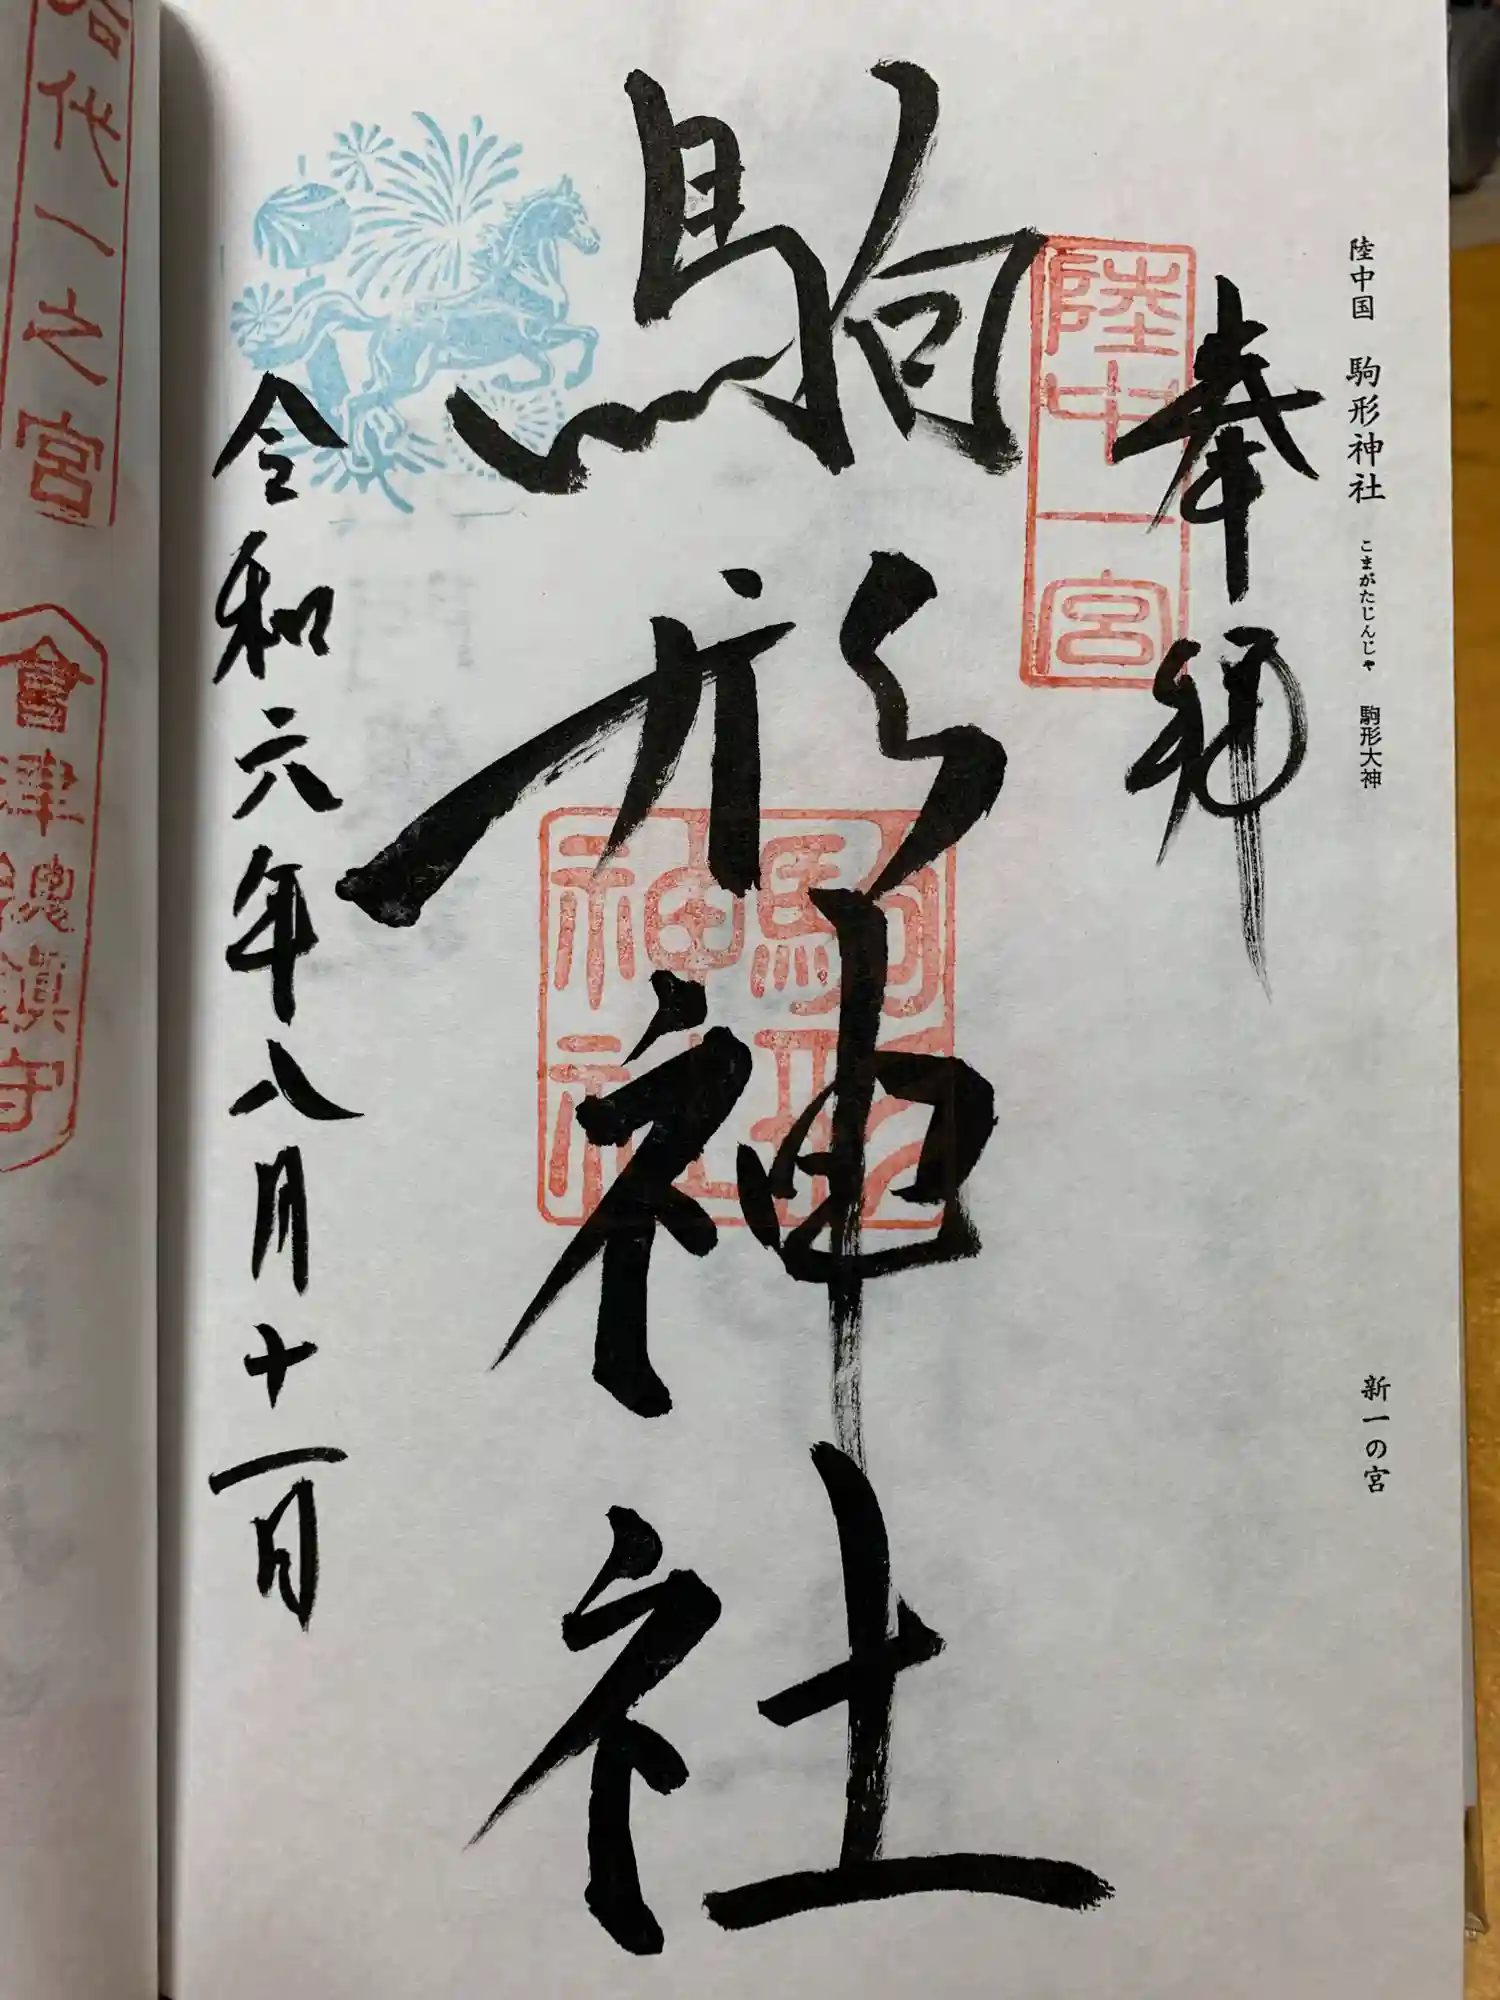 陸中国 駒形神社 こまがたじんじゃ 駒形大神
新一の宮
奉拝
陸中一宮
駒形神社
駒形
神社
令和六年八月十一日
代一之宮
會津総鎮守